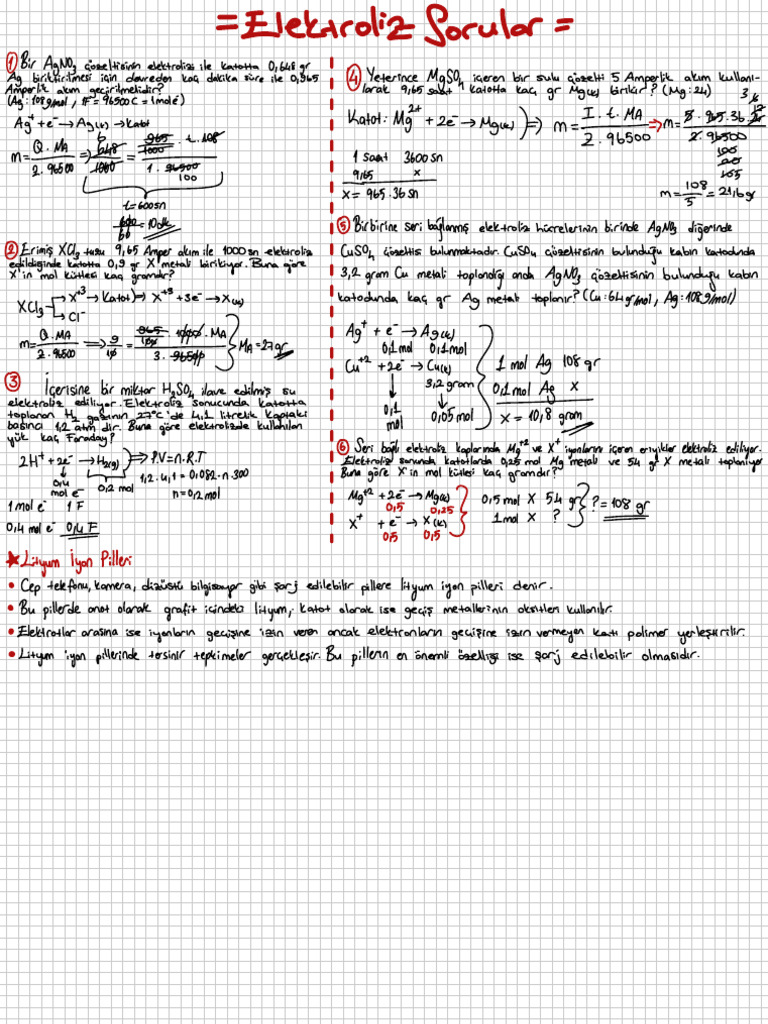 = Elektroliz Sorular =
① Bir AgNO₃ çözeltisinin elektrolizi ile katotta 0,648 gr
Ag biriktirilmesi için devreden kaç dakika süre ile 0,965
Amperlik akım geçirilmelidir?
(Ag: 108 g/mol, F = 96500 C = 1 mol e⁻)
Ag⁺ + e⁻ → Ag(k) → Katot
m = Q.MA / 2.96500 ⇒ 648 / 1000 = 965/1000 . t . 108 / 1. 96500
6
100
t = 600 sn
600 / 60 = 10 dk
② Erimiş XCl₃ tuzu 9,65 Amper akım ile 1000 sn elektroliz
edildiğinde katotta 0,9 gr X metali birikiyor. Buna göre
X'in mol kütlesi kaç gramdır?
XCl₃ → X⁺³ → Katot ⇒ X⁺³ + 3e⁻ → X(k)
→ Cl⁻
m = Q.MA / 2.96500 ⇒ 9 / 10 = 965/100 . 1000 . MA / 3. 96500 } MA = 27 gr
③ İçerisine bir miktar H₂SO₄ ilave edilmiş su
elektroliz ediliyor. Elektroliz sonucunda katotta
toplanan H₂ gazının 27°C'de 4,1 litrelik kaptaki
basıncı 1,2 atm dir. Buna göre elektrolizde kullanılan
yük kaç Faraday?
2H⁺ + 2e⁻ → H₂(g) ⇒ P.V = n.R.T
0,4 mol e⁻ 0,2 mol 1,2 . 4,1 = 0,082 . n . 300
n = 0,2 mol
1 mol e⁻ 1 F
0,4 mol e⁻ 0,4 F
④ Yeterince MgSO₄ içeren bir sulu çözelti 5 Amperlik akım kullanı-
larak 9,65 saat katotta kaç gr Mg(k) birikir? (Mg: 24)
Katot: Mg²⁺ + 2e⁻ → Mg(k) ⇒ m = I. t. MA / 2.96500 ⇒ m = 5. 965.36. 24 / 2. 96500
3 6 12
100
20
105
1 saat 3600 sn
9,65 x
x = 965.36 sn
m = 108 / 5 = 21,6 gr
⑤ Birbirine seri bağlanmış elektroliz hücrelerinin birinde AgNO₃ diğerinde
CuSO₄ çözeltisi bulunmaktadır. CuSO₄ çözeltisinin bulunduğu kabın katodunda
3,2 gram Cu metali toplandığı anda AgNO₃ çözeltisinin bulunduğu kabın
katodunda kaç gr Ag metali toplanır? (Cu: 64 gr/mol, Ag: 108 g/mol)
Ag⁺ + e⁻ → Ag(k)
0,1 mol 0,1 mol
Cu⁺² + 2e⁻ → Cu(k)
3,2 gram
0,1 mol 0,05 mol
1 mol Ag 108 gr
0,1 mol Ag x
x = 10,8 gram
⑥ Seri bağlı elektroliz kaplarında Mg⁺² ve X⁺ iyonlarını içeren eriyikler elektroliz ediliyor.
Elektroliz sonunda katotlarda 0,25 mol Mg metali ve 54 gr X metali toplanıyor
Buna göre X'in mol kütlesi kaç gramdır?
Mg⁺² + 2e⁻ → Mg(k)
0,5 0,25
X⁺ + e⁻ → X(k)
0,5 0,5
0,5 mol X 54 gr
1 mol X ? } ? = 108 gr
★ Lityum İyon Pilleri
• Cep telefonu, kamera, dizüstü bilgisayar gibi şarj edilebilir pillere lityum iyon pilleri denir.
• Bu pillerde anot olarak grafit içindeki lityum, katot olarak ise geçiş metallerinin oksitleri kullanılır.
• Elektrotlar arasına ise iyonların geçişine izin veren ancak elektronların geçişine izin vermeyen katı polimer yerleştirilir.
• Lityum iyon pillerinde tersinir tepkimeler gerçekleşir. Bu pillerin en önemli özelliği ise şarj edilebilir olmasıdır.